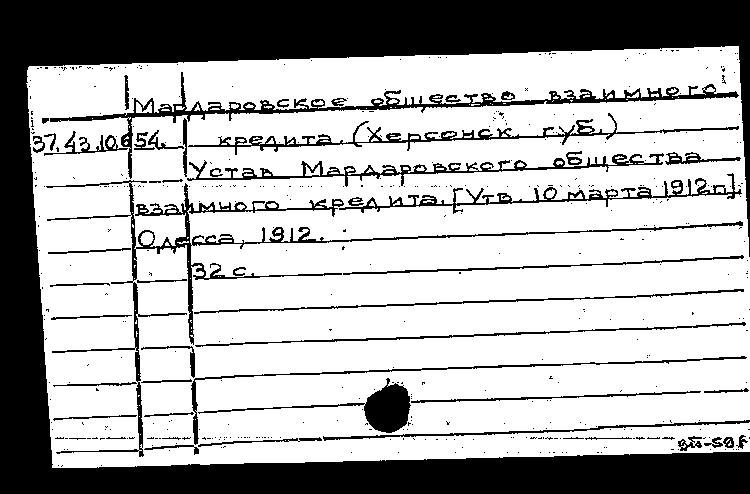 Мардаровское общество взаимного
37.43.10.654. кредита. (Херсонск. губ.)
Устав Мардаровского общества
взаимного кредита. [Утв. 10 марта 1912 г.].
Одесса, 1912.
32 с.